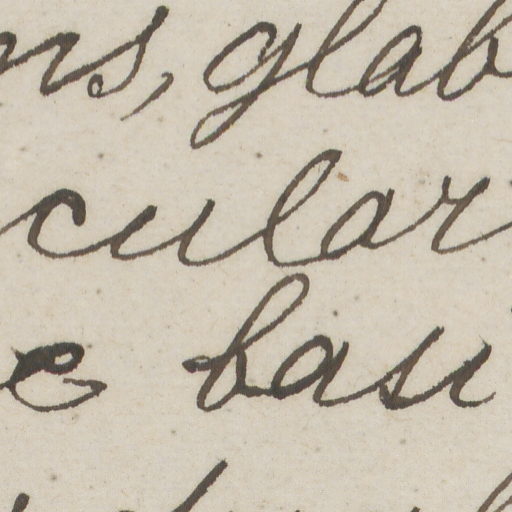 ns, glab
cular
e basi